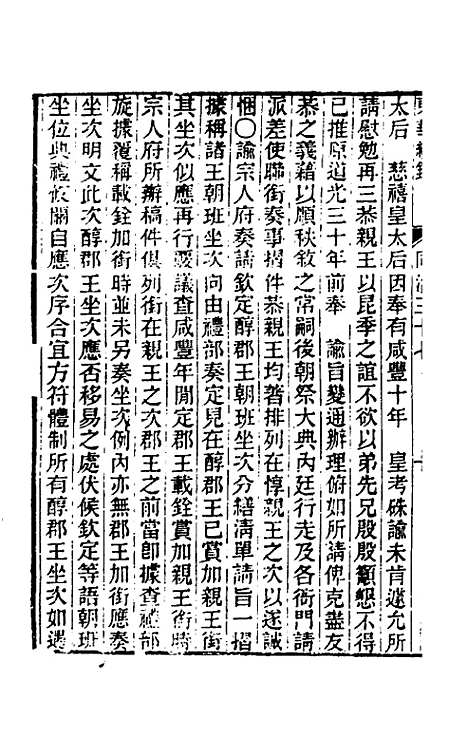 太后　慈禧皇太后因奉有咸豐十年　皇考硃諭未肯遽允所
請慰勉再三恭親王以昆季之誼不欲以弟先兄殷殷籲懇不得
已推原道光三十年前奉　諭旨變通辦理俯如所請俾克盡友
恭之義藉以順秩敘之常嗣後朝祭大典內廷行走及各衙門請
派差使聯銜奏事摺件恭親王均著排列在惇親王之次以遂誠
悃〇諭宗人府奏請欽定醇郡王朝班坐次分繕清單請旨一摺
據稱諸王朝班坐次向由禮部奏定見在醇郡王已賞加親王銜
其坐次似應再行覈議查咸豐年間定郡王載銓賞加親王銜時
宗人府所辦稿件俱列銜在親王之次郡王之前當卽據查禮部
旋據覆稱載銓加銜時並未另奏坐次例內亦無郡王加銜應奏
坐次明文此次醇郡王坐次應否移易之處伏候欽定等語朝班
坐位典禮攸關自應次序合宜方符體制所有醇郡王坐次如遇